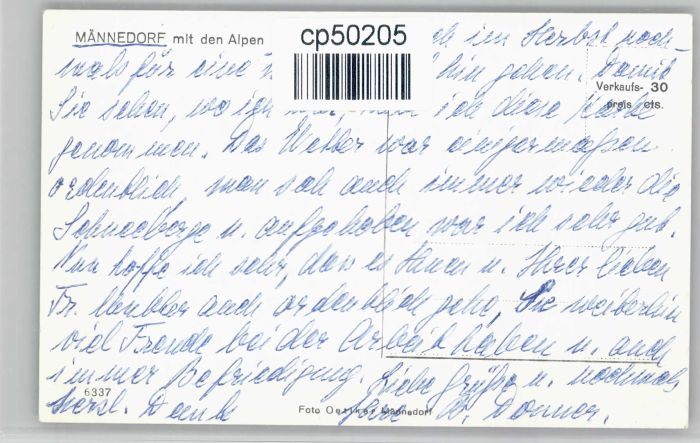 MÄNNEDORF mit den Alpen
cp50205
ich im Herbst noch-
mals für eine hin gehen. Damit
Verkaufs- 30
preis cts.
Sie sehen, wo ich war, ich diese Karte
genommen. Das Wetter war einigermaßen
ordentlich, man sah auch immer wieder die
Schneeberge u. aufgehoben war ich sehr gut.
Nun hoffe ich sehr, dass es Ihnen u. Ihrer lieben
Fr. Mutter auch ordentlich geht, Sie weiterhin
viel Freude bei der Arbeit haben u. auch
immer Befriedigung. Liebe Grüße u. nochmals
6337
herzl. Dank Ihre
Foto Oetiker Männedorf